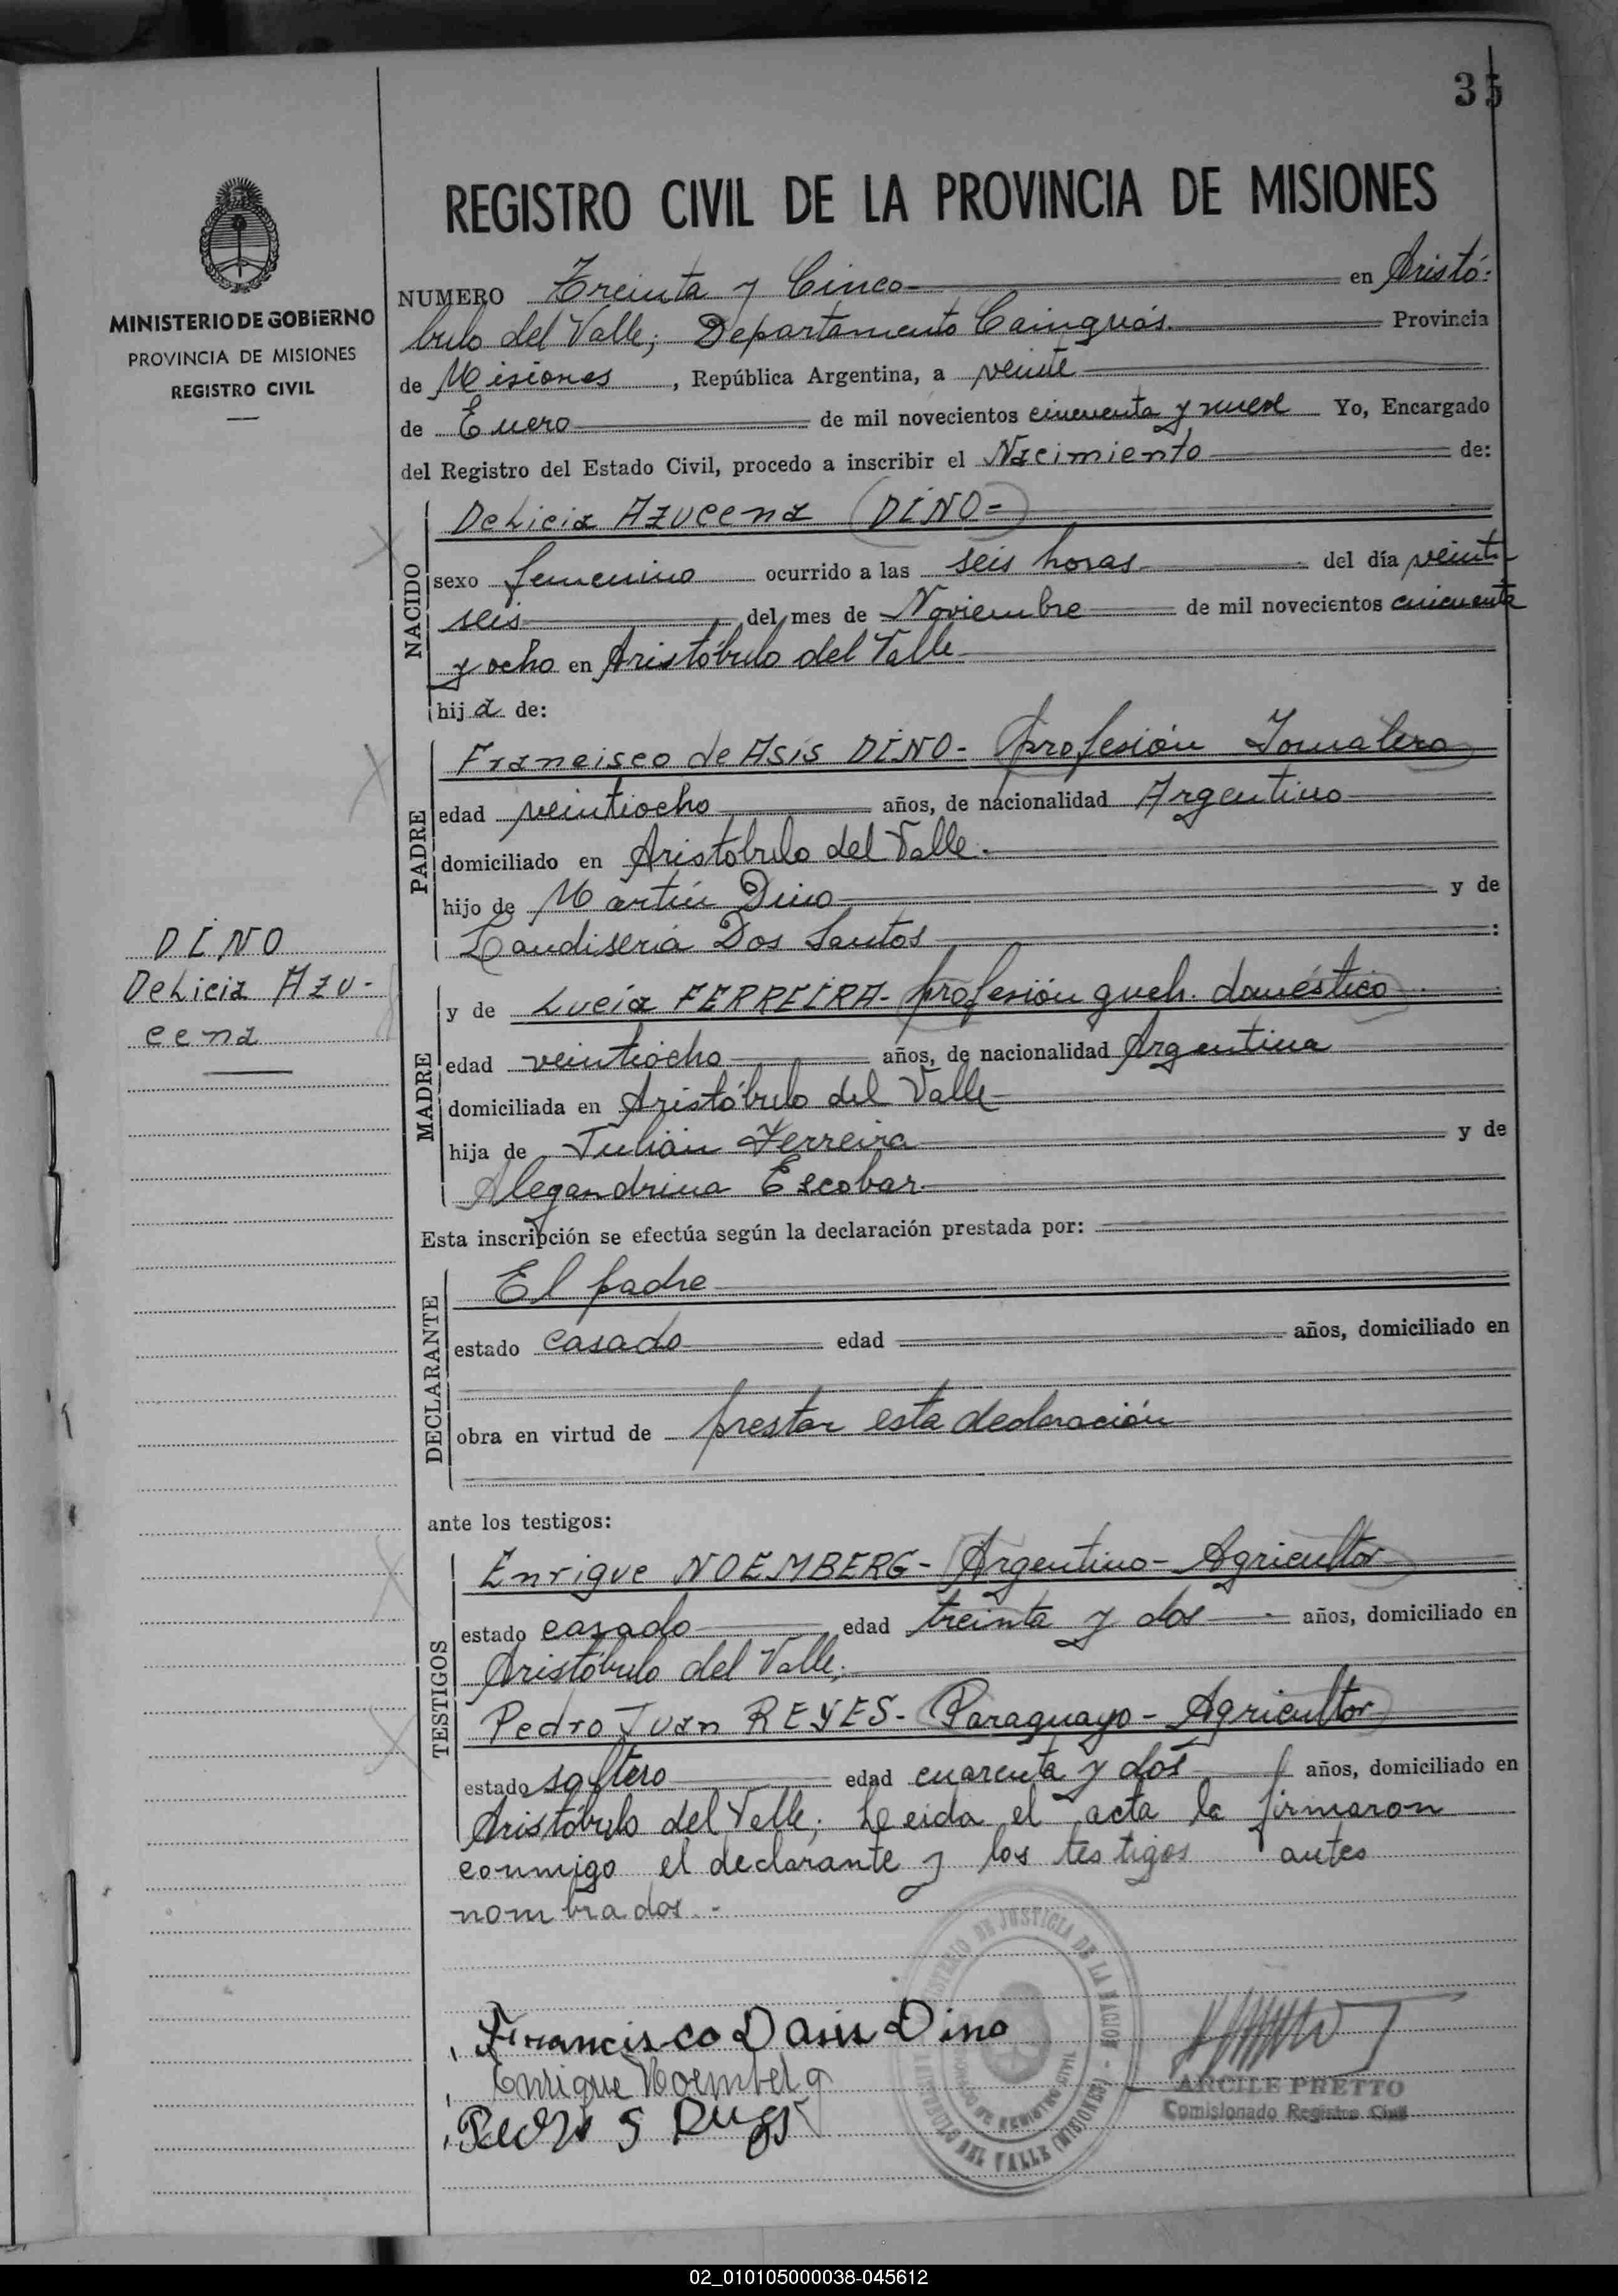 35
REGISTRO CIVIL DE LA PROVINCIA DE MISIONES
MINISTERIO DE GOBIERNO
PROVINCIA DE MISIONES
REGISTRO CIVIL
NUMERO Treinta y Cinco en Aristó-
bulo del Valle; Departamento Cainguás. Provincia
de Misiones, República Argentina, a veinte
de Enero de mil novecientos cincuenta y nueve Yo, Encargado
del Registro del Estado Civil, procedo a inscribir el Nacimiento de:
NACIDO
Delicia Azucena (DINO=)
sexo femenino ocurrido a las seis horas del día veinti-
seis del mes de Noviembre de mil novecientos cincuenta
y ocho en Aristóbulo del Valle
hija de:
PADRE
Francisco de Asis DINO- (profesión Jornalero)
edad veintiocho años, de nacionalidad Argentino
domiciliado en Aristóbulo del Valle.
hijo de Martín Dino y de
Dos Santos :
DINO
Delicia Azu-
cena
MADRE
y de Lucía FERREIRA- (profesión queh. doméstico)
edad veintiocho años, de nacionalidad Argentina
domiciliada en Aristóbulo del Valle
hija de Julián Ferreira y de
Alegandrina Escobar
Esta inscripción se efectúa según la declaración prestada por:
DECLARANTE
El padre
estado casado edad años, domiciliado en
obra en virtud de prestar esta declaración
ante los testigos:
TESTIGOS
Enrique NOEMBERG- (Argentino- Agricultor)
estado casado edad treinta y dos años, domiciliado en
Aristóbulo del Valle;
Pedro Juan REYES- (Paraguayo- Agricultor)
estado soltero edad cuarenta y dos años, domiciliado en
Aristóbulo del Valle; Leida el acta la firmaron
conmigo el declarante y los testigos antes
nombrados.-
MINISTERIO DE JUSTICIA DE LA NACION
ARISTOBULO DEL VALLE (MISIONES)
Francisco Dasis Dino
Enrique Noemberg
ARCILE PRETTO
Comisionado Registro Civil
02_010105000038-045612